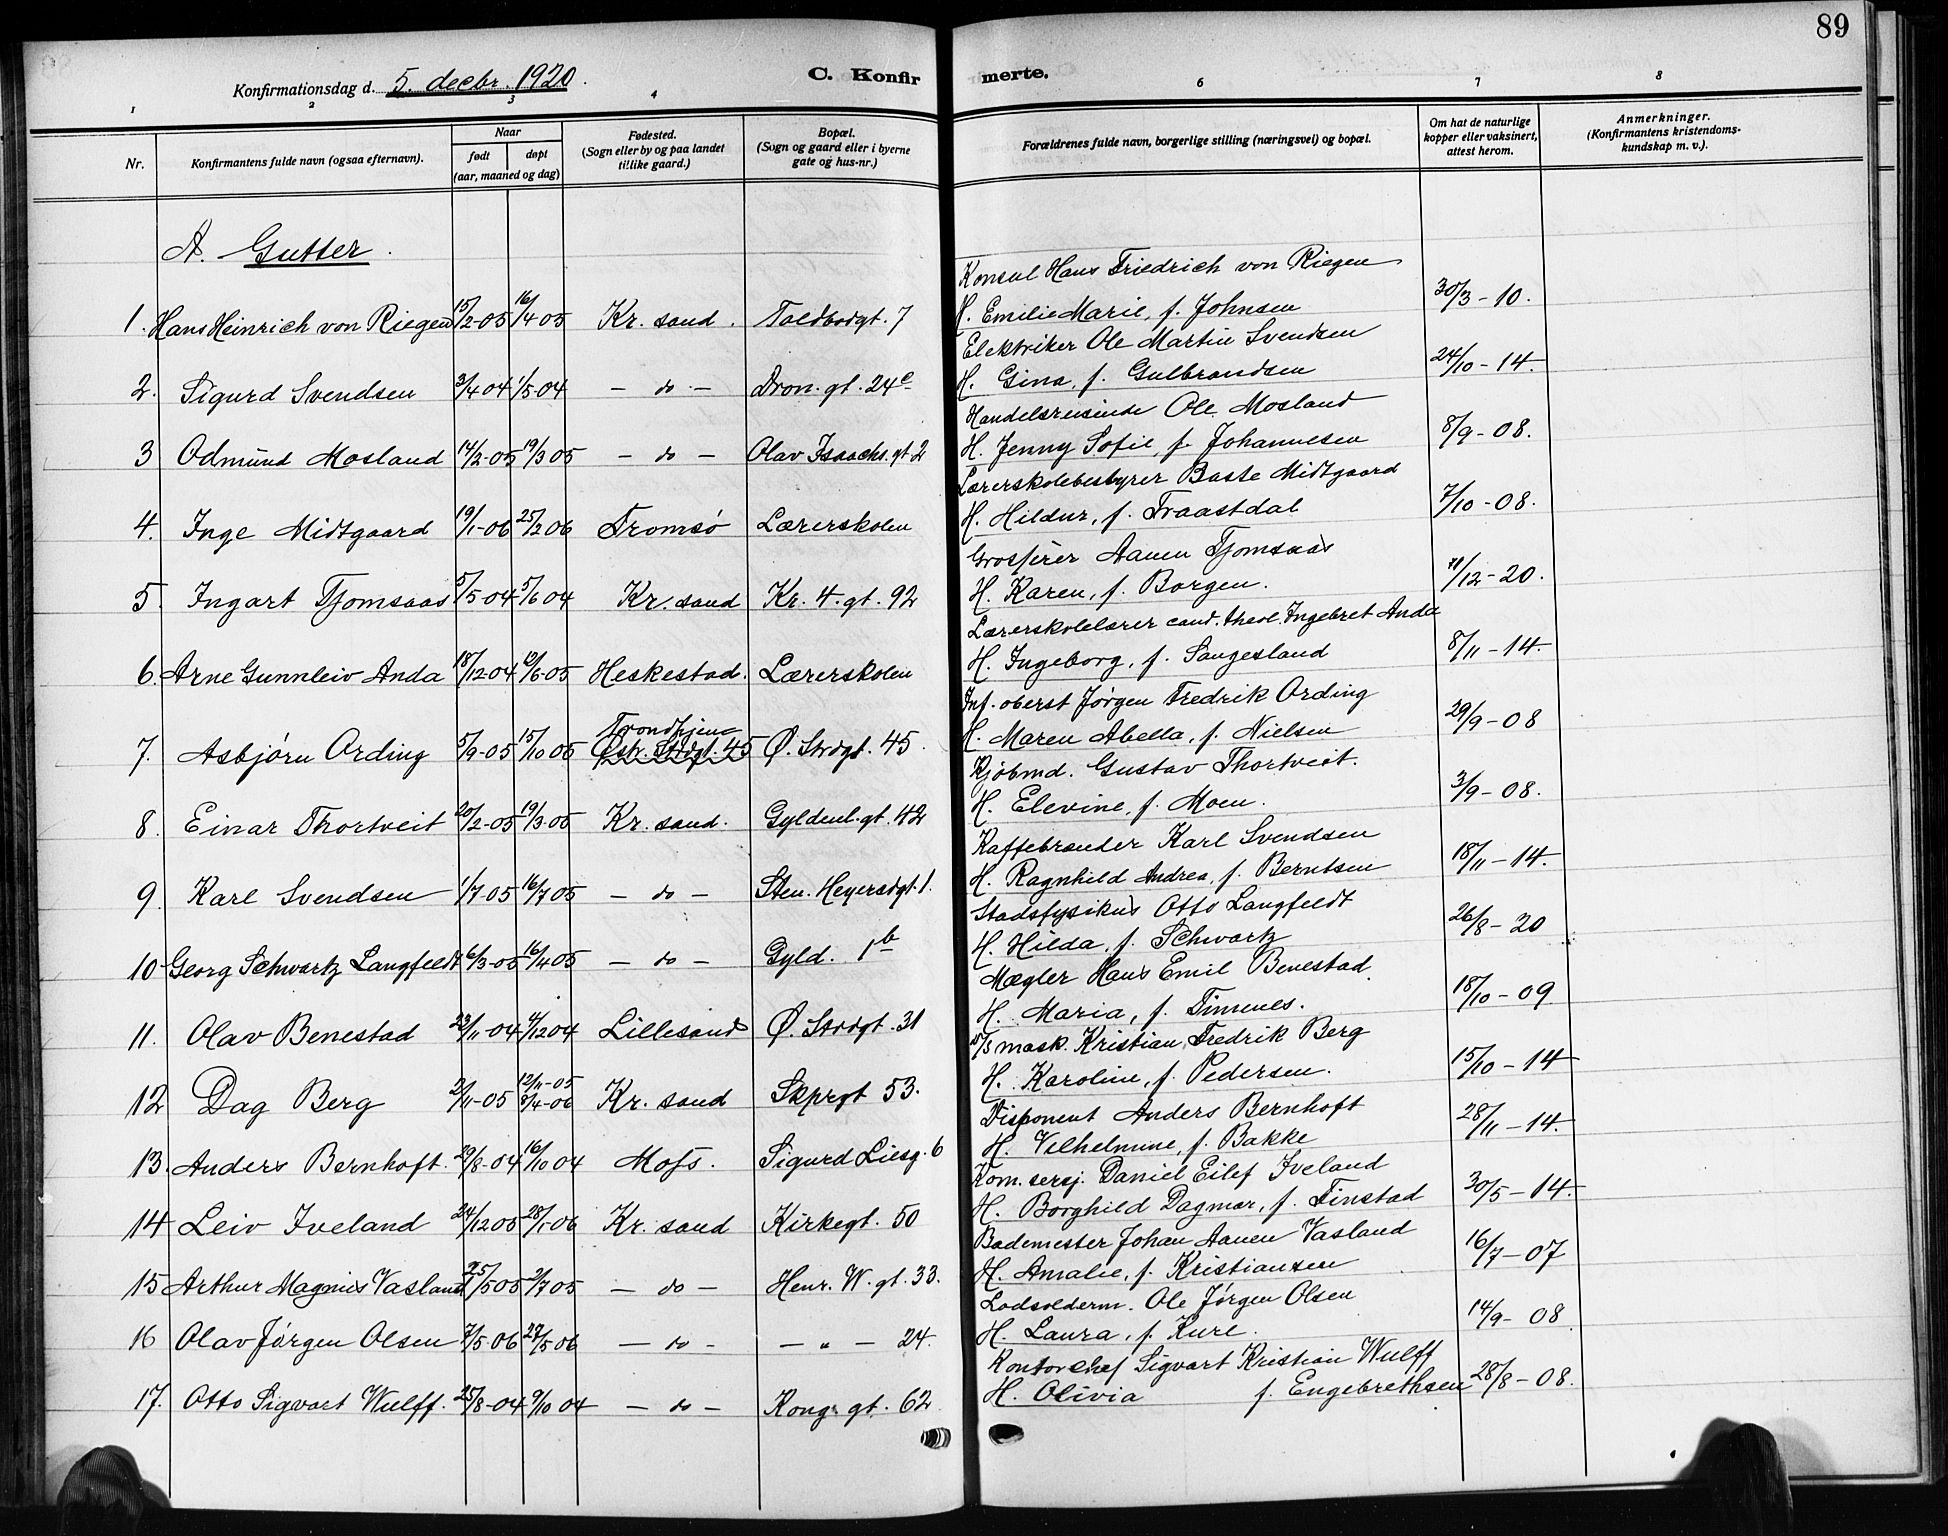 89
Konfirmationsdag d. 5. decbr. 1920.
C. Konfirmerte.
1 2 3 4 6 7 8
Nr.
Konfirmantens fulde navn (ogsaa efternavn).
Naar
født
døpt
(aar, maaned og dag)
Fødested.
(Sogn eller by og paa landet
tillike gaard.)
Bopæl.
(Sogn og gaard eller i byerne
gate og hus-nr.)
Forældrenes fulde navn, borgerlige stilling (næringsvei) og bopæl.
Om hat de naturlige
kopper eller vaksinert,
attest herom.
Anmerkninger.
(Konfirmantens kristendoms-
kundskap m. v.).
A. Gutter.
Konsul Hans Friedrich von Riegen
1. Hans Heinrich von Riegen 15/2-05 16/4 05 Kr. sand. Toldbodgt. 7 H. Emilie Marie, f. Johnsen 30/3-10.
Elektriker Ole Martin Svendsen
2. Sigurd Svendsen 3/4 04 1/5-04 - do - Dron. gt. 24c H. Gina, f. Gulbrandsen 24/10-14.
Handelsreisende Ole Mosland
3 Odmund Mosland 14/2-05 19/3 05 - do - Olav Isaachs. gt 2 H. Jenny Sofie, f. Johannesen 8/9-08.
Lærerskolebestyrer Baste Midtgaard
4. Inge Midtgaard 19/1-06 25/2 06 Tromsø Lærerskolen H. Hildur, f. Fraastdal 7/10-08.
Grosserer Aanen Tjomsaas
5. Ingart Tjomsaas 5/5-04 5/6 04 Kr. sand Kr. 4. gt. 92 H. Karen, f. Borgen. 11/12-20.
Lærerskolelærer cand. theol. Ingebret Anda
6. Arne Gunnleiv Anda 18/12-04 12/6-05 Heskestad. Lærerskolen H. Ingeborg, f. Sangesland 8/11-14.
Inf. oberst Jørgen Fredrik Ording
Trondhjem
7. Asbjørn Ording 5/9-05 15/10 05 Østr. Strdgt. 45 Ø. Strdgt. 45. H. Maren Abella, f. Nielsen 29/9-08
Kjøbmd. Gustav Thortveit.
8. Einar Thortveit 20/2-05 19/3-05 Kr. sand. Gyldenl. gt. 42 H. Elevine, f. Moen. 3/9-08.
Kaffebrænder Karl Svendsen
9. Karl Svendsen 1/7-05 16/7 05 - do - Sten. Heyerdgt 1. H. Ragnhild Andrea, f. Berntsen 18/11-14.
Stadsfysikus Otto Langfeldt
10 Georg Schwartz Langfeldt 6/3-05 16/4 05 - do - Gyld. 1b H. Hilda, f. Schwartz 26/8-20
Mægler Hans Emil Benestad.
11. Olav Benestad 23/11-04 4/12 04 Lillesand Ø. Strdgt. 31 H. Maria, f. Timenes. 18/10-09
mask. Kristian Fredrik Berg
12/11-05
12 Dag Berg 2/11-05 8/4-06 Kr. sand Skprgt 53. H. Karoline, f. Pedersen. 15/10-14
Disponent Anders Bernhoft
13. Anders Bernhoft. 29/8-04 16/10 04 Moss. Sigurd Liesg. 6 H. Vilhelmine, f. Bakke 28/11-14.
Kom. sersj. Daniel Eilef Iveland
14 Leiv Iveland 24/12 05 28/1-06 Kr. sand Kirkegt. 50 H. Borghild Dagmar, f. Finstad 30/5-14.
Bademester Johan Aanen Vasland
15 Arthur Magnus Vasland 25/5 05 2/7 05 - do - Henr. W. gt. 33. H. Amalie, f. Kristiansen 16/7-07
Lodsolderm. Ole Jørgen Olsen
16 Olav Jørgen Olsen 7/5-06 27/5 06 - do - - " - 24. H. Laura, f. Kure. 14/9-08
Kontorchef Sigvart Kristian Wulff
17. Otto Sigvart Wulff. 25/8-04 9/10 04 - do - Kong. gt. 62. H. Olivia f. Engebrethsen 28/8-08.